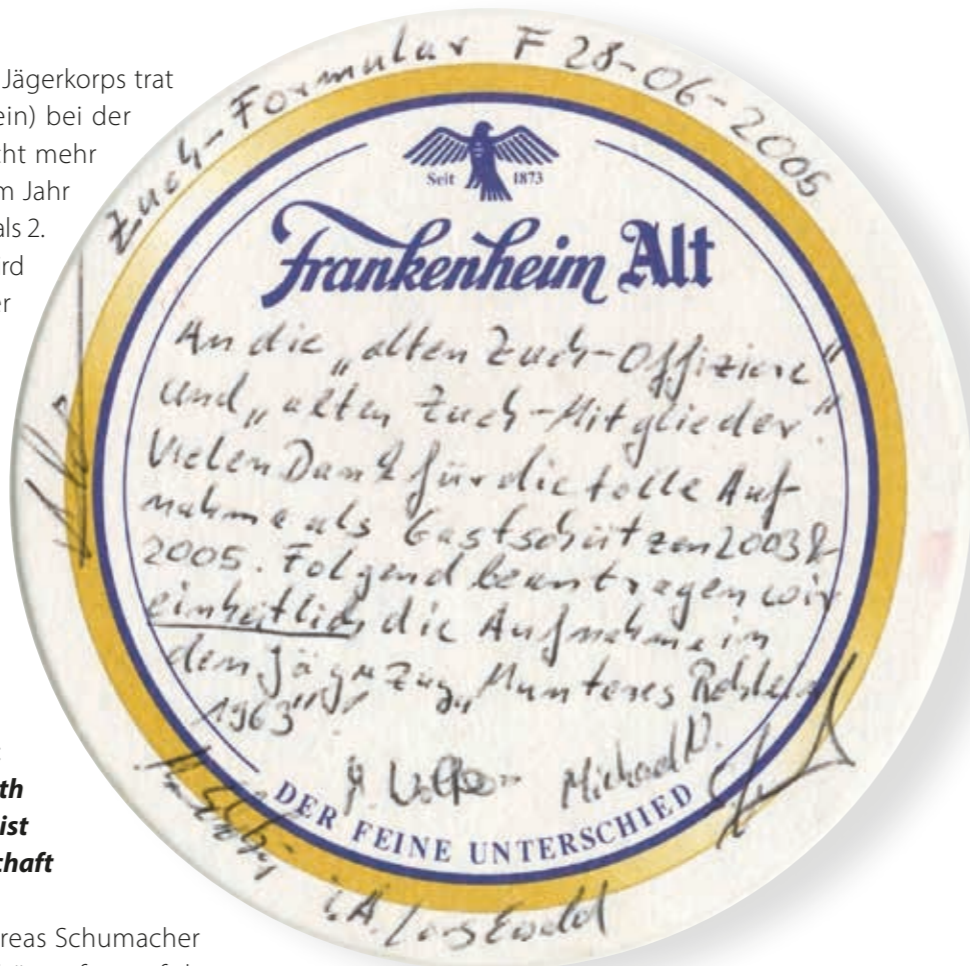 Jägerkorps trat
ein) bei der
cht mehr
m Jahr
als 2.
rd
er
th
ist
chaft
reas Schumacher
Zuch-Formular F 28-06-2005
Seit 1873
Frankenheim Alt
An die „alten Zuch-Offiziere“
und „alten Zuch-Mitglieder“.
Vielen Dank für die tolle Auf-
nahme als Gastschützen 2003 &
2005. Folgend beantragen wir
einheitlich die Aufnahme in
den Jägerzug „Munteres Rehlein
1963“
Michael N.
DER FEINE UNTERSCHIED
i.A. Lars Ewald